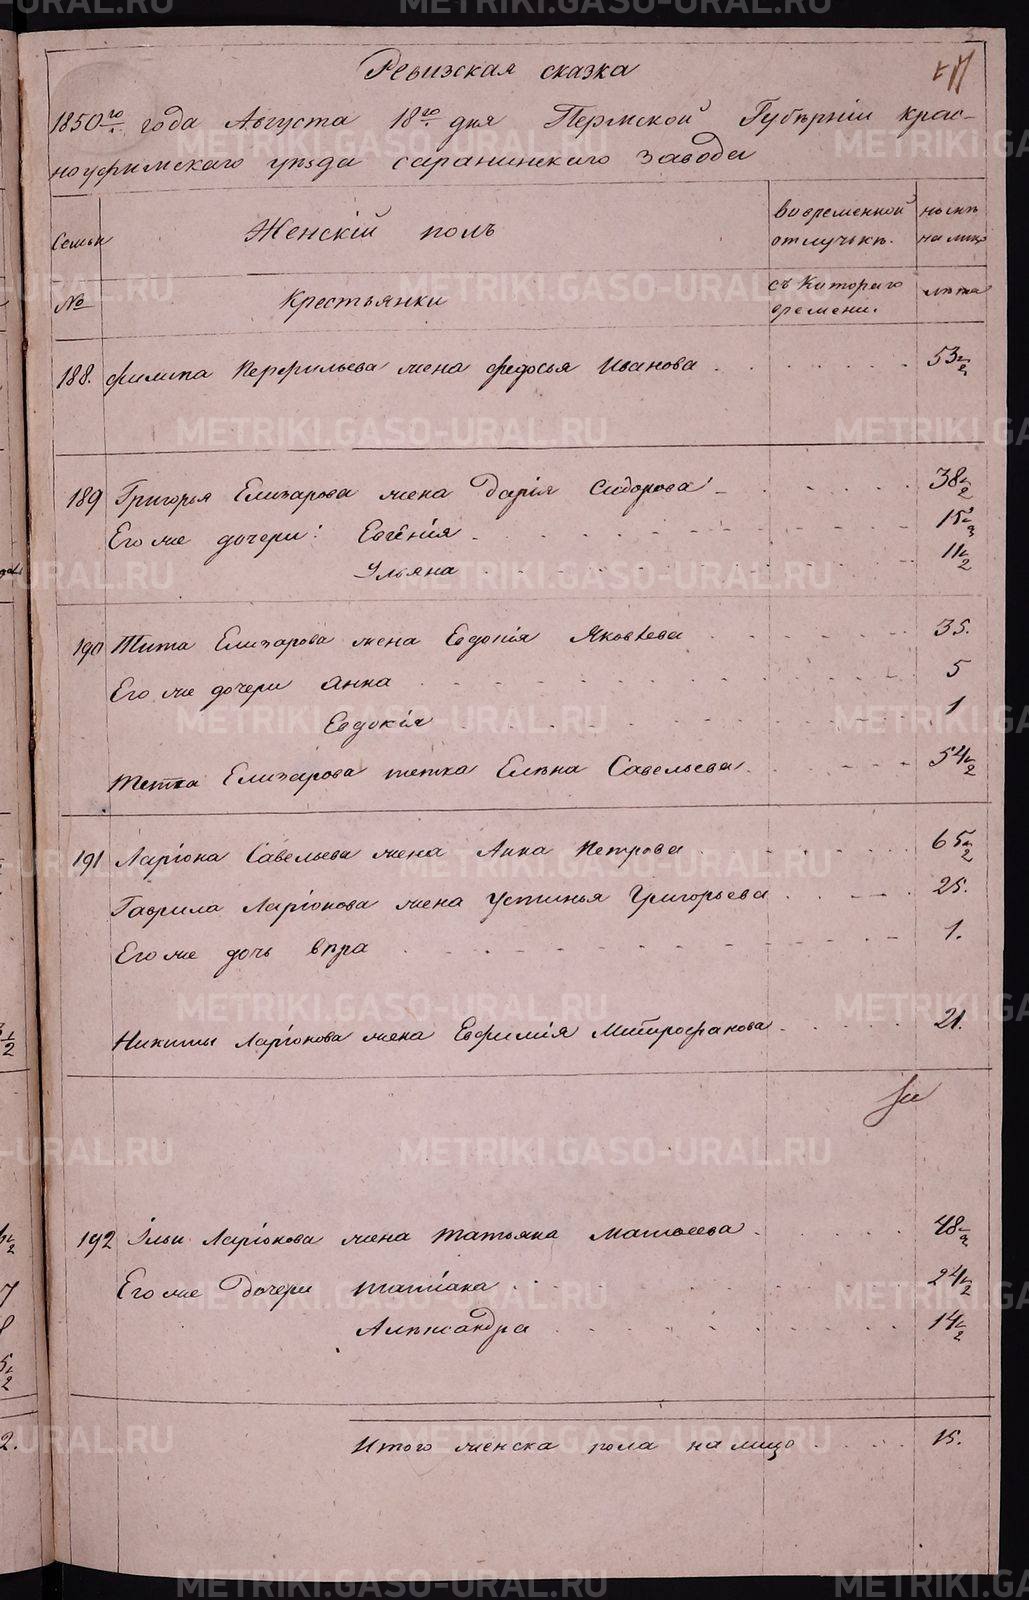 Ревизская сказка
1850го года Августа 18го дня Пермской Губѣрніи крас-
ноуфимскаго уѣзда саранинскаго завода
Семьи
Женскій полъ
во временной отлучькѣ.
нынѣ на лицо
№
Крестьянки
съ Котораго времени.
лѣта
188. филипа Перфильева жена федосья Иванова 53½
189 Григорья Елизарова жена Дарія Сидорова 38½
Его же дочери: Евгенія 15½
Ульяна 11½
190 Тита Елизарова жена Евдокія Яковлева 35.
Его же дочери Анна 5
Евдокія 1
Тетка Елизарова тетка Елѣна Савельева 54½
191 Ларіона Савельева жена Анна Петрова 65½
Гаврила Ларіонова жена Устинья Григорьева 25.
Его же дочь вѣра 1.
Никиты Ларіонова жена Евфимія Митрофанова 21.
192 Ильи Ларіонова жена Татьяна Матвеева 48½
Его же Дочери татіана 24½
Алѣксандра 14½
Итого женска пола на лицо 15.
METRIKI.GASO-URAL.RU